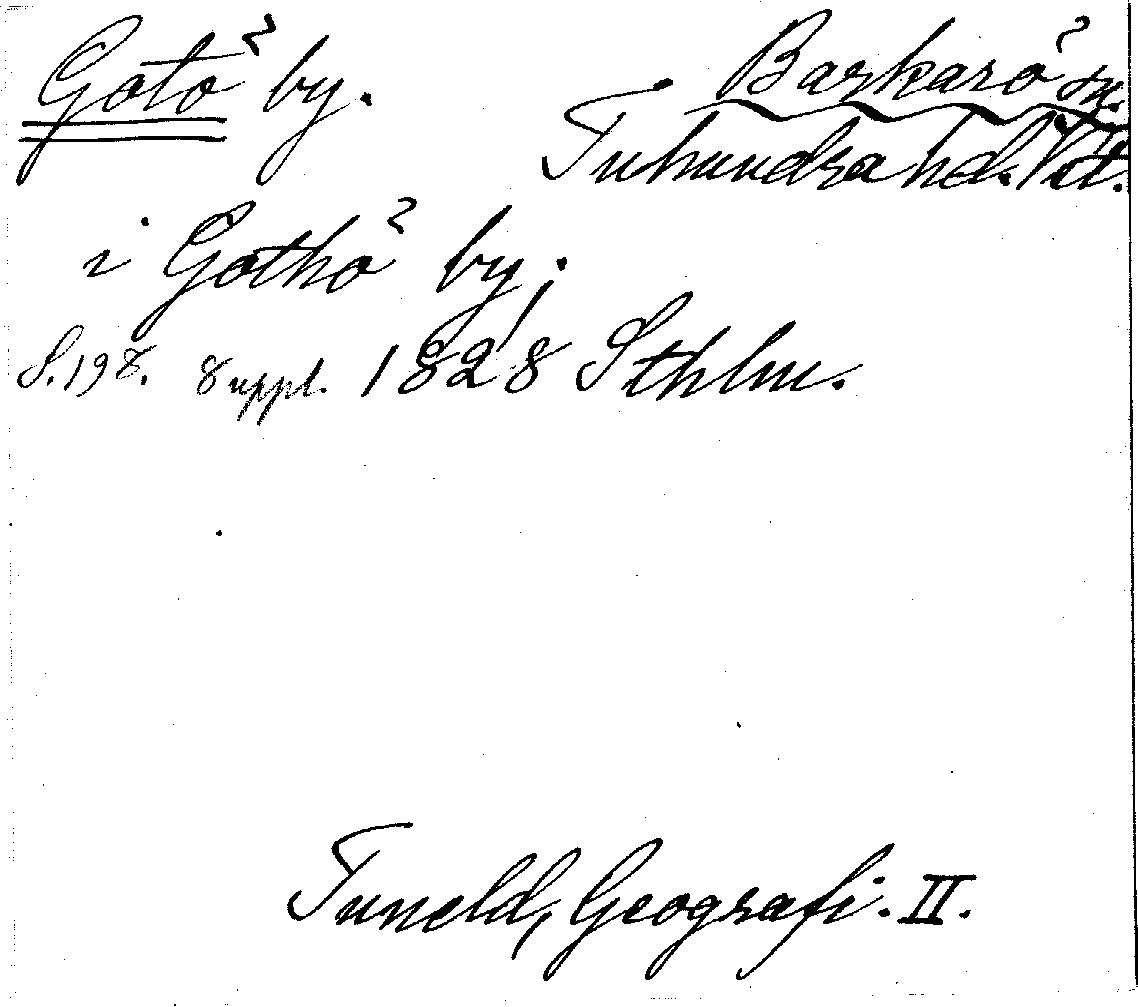 Gotö by. Barkarö sn.
Tuhundra hd.
i Gothö by;
S. 198. Suppl. 1828 Sthlm.
Tuneld, Geografi. II.